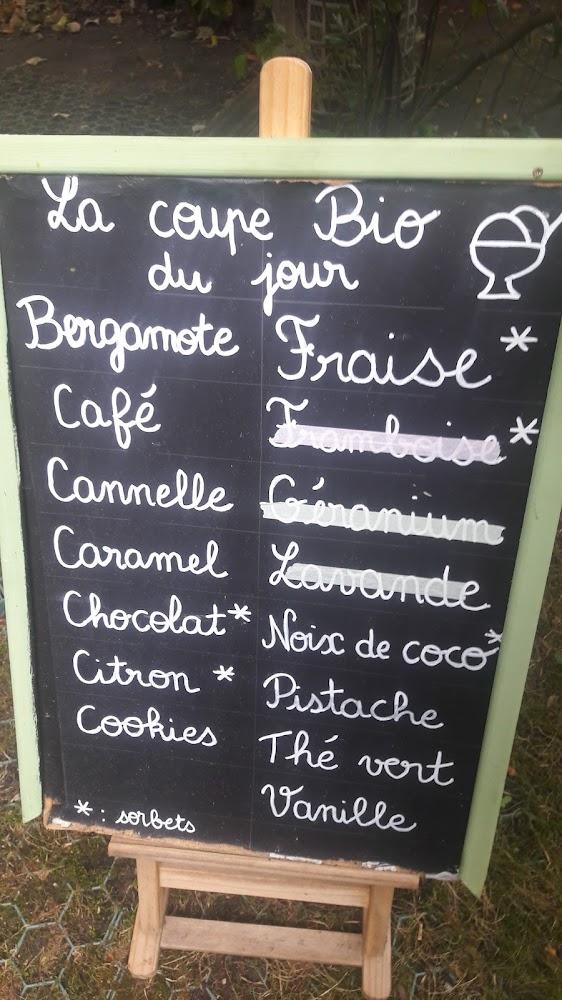 La coupe Bio
du jour
Bergamote
Café
Cannelle
Caramel
Chocolat*
Citron *
Cookies
* : sorbets
Fraise *
Framboise *
Géranium
Lavande
Noix de coco*
Pistache
Thé vert
Vanille